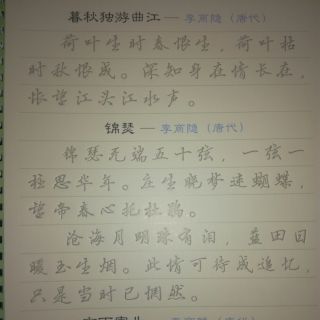 暮秋独游曲江 — 李商隐（唐代）
荷叶生时春恨生，荷叶枯
时秋恨成。深知身在情长在，
怅望江头江水声。
锦瑟 — 李商隐（唐代）
锦瑟无端五十弦，一弦一
柱思华年。庄生晓梦迷蝴蝶，
望帝春心托杜鹃。
沧海月明珠有泪，蓝田日
暖玉生烟。此情可待成追忆，
只是当时已惘然。